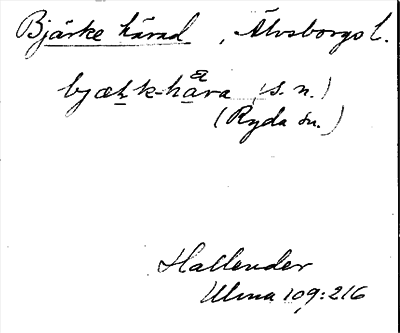 Bjärke härad, Älvsborgs l.
bjæꞕk-hæra (s. n.)
(Ryda sn.)
Hallender
Ulma 109:216